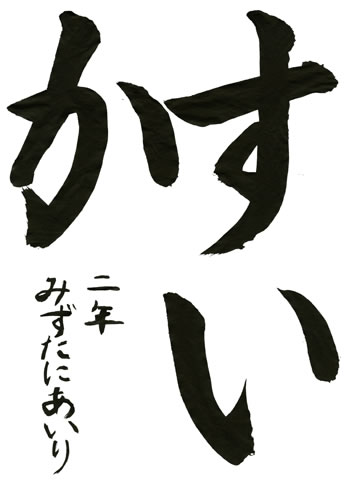 すい
か
二年
みずたにあいり